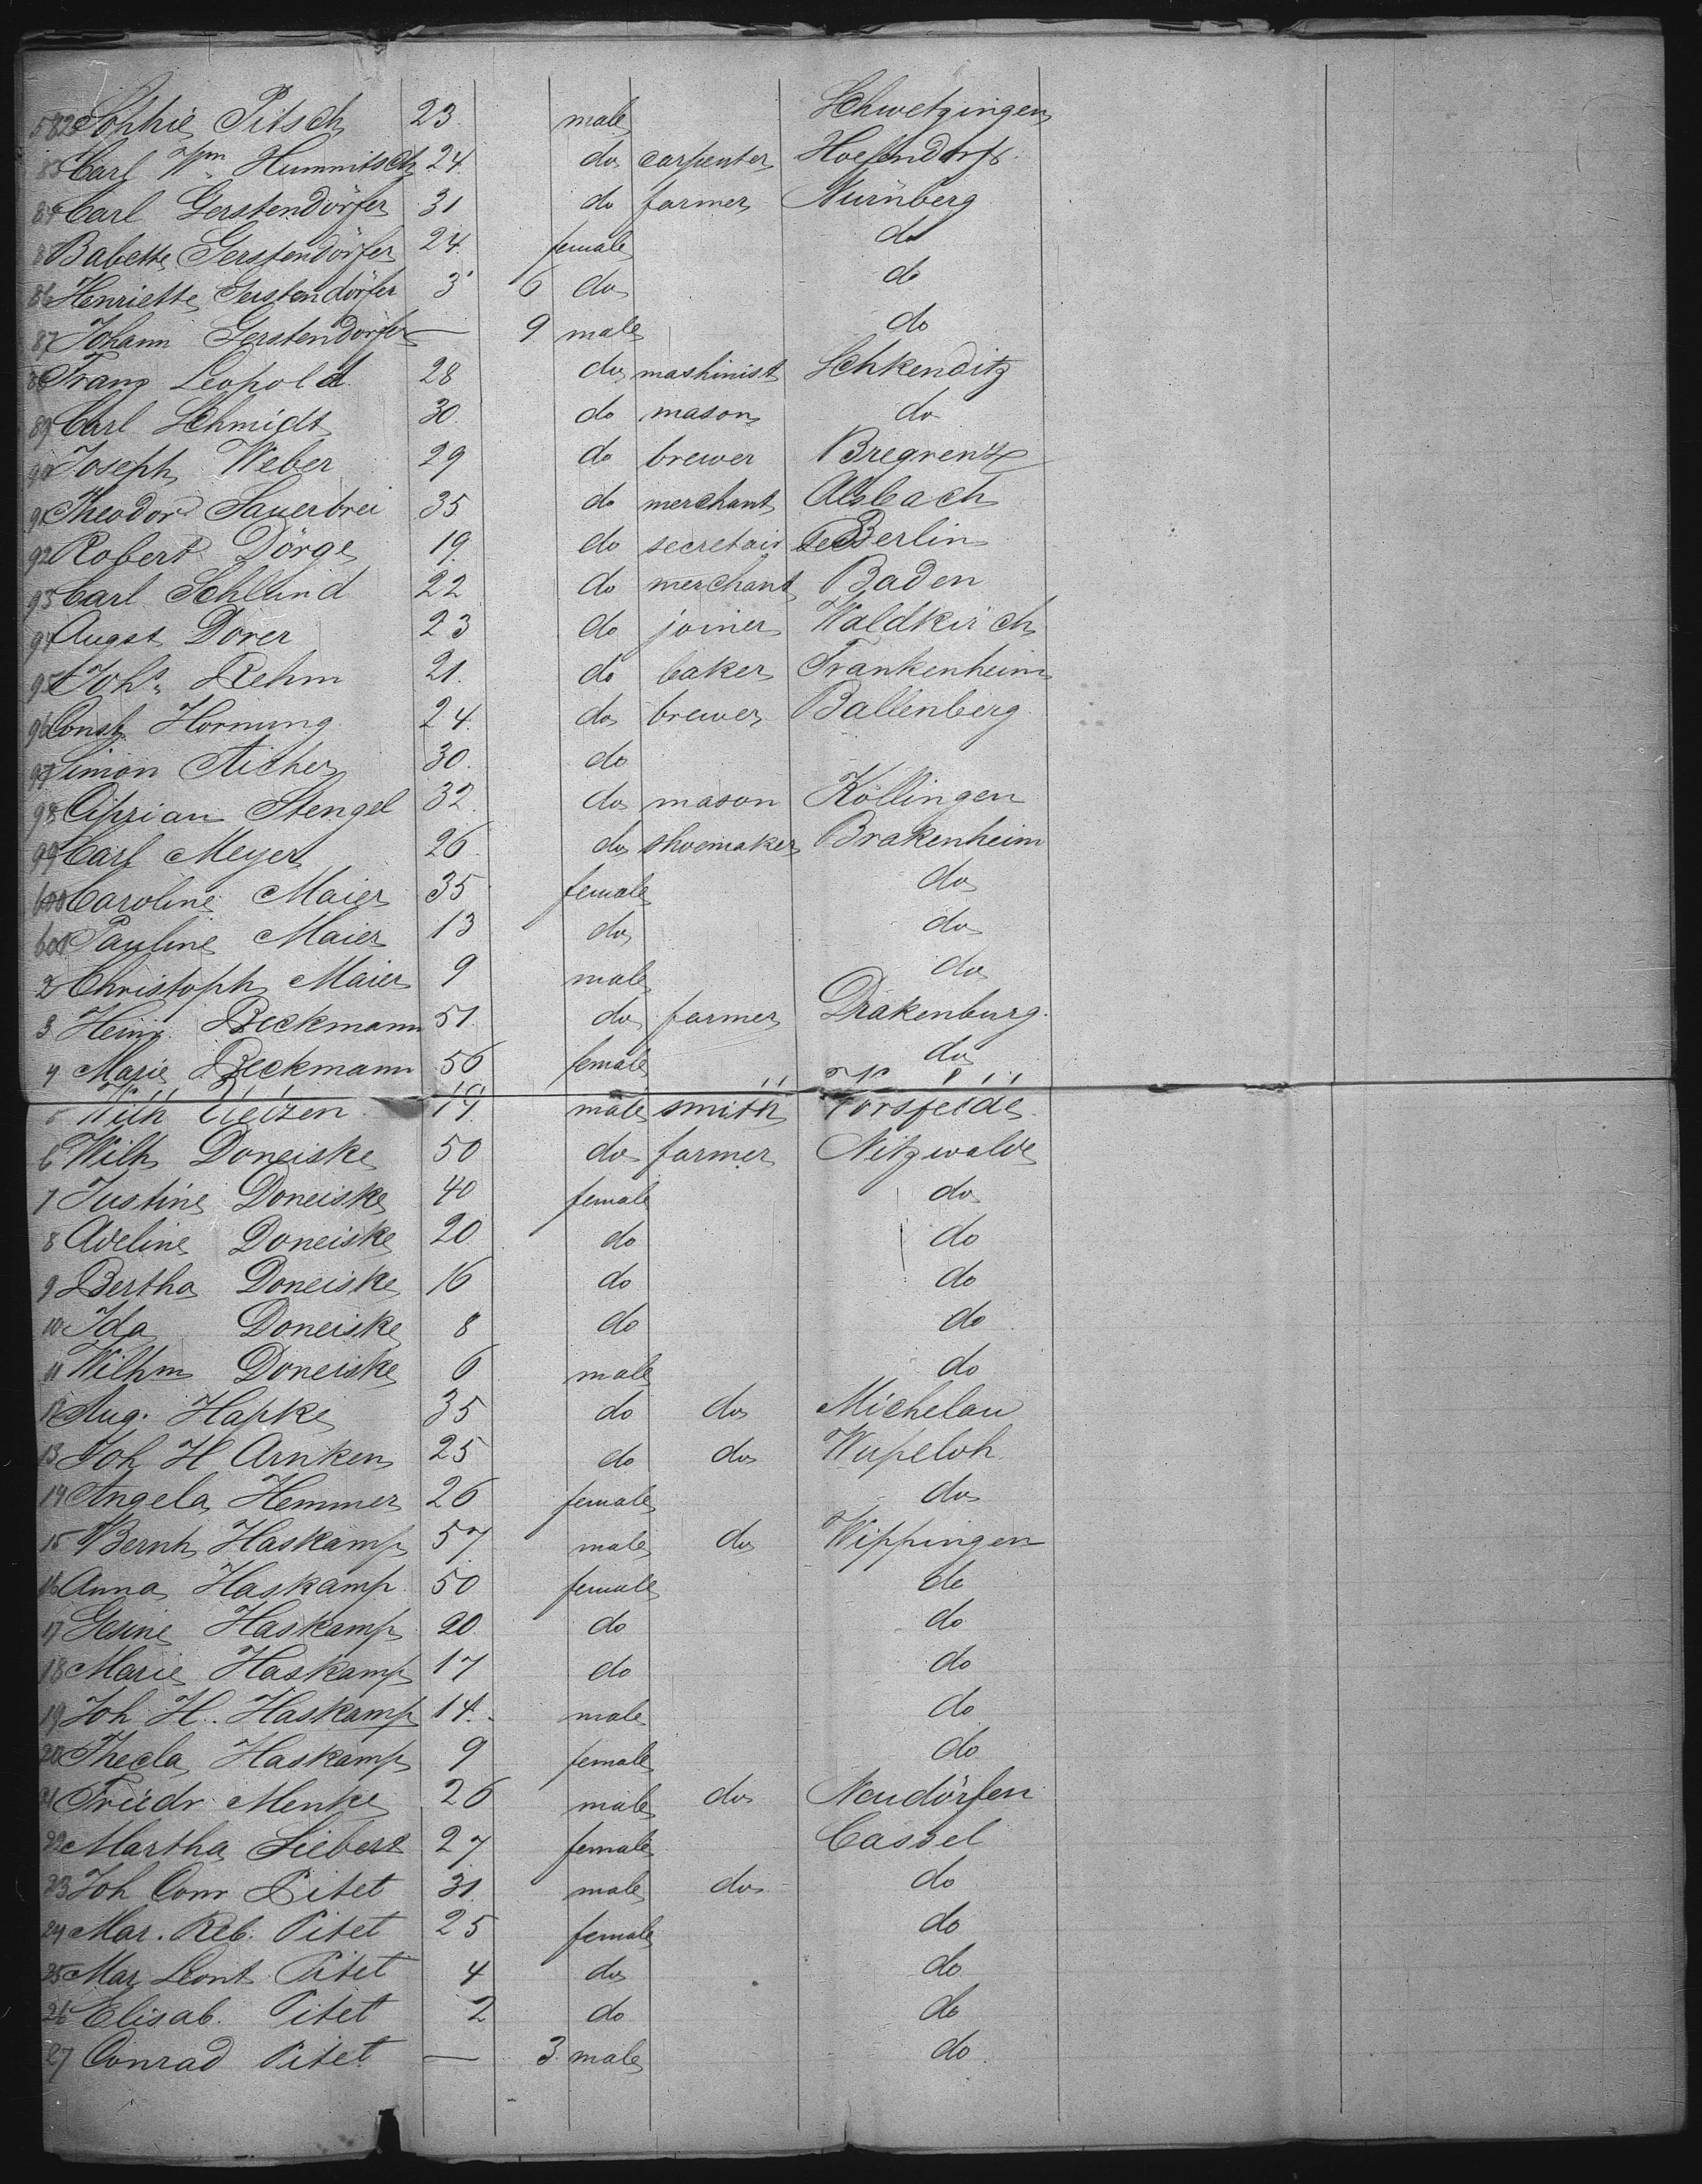 582 Sophie Pitsch 23 male Schwetzingen
83 Carl Wm Hummitsch 24 do carpenter Hoefendorf
84 Carl Gerstendörfer 31 do farmer Nürnberg
85 Babette Gerstendörfer 24 female do
86 Henriette Gerstendörfer 3 6 do do
87 Johann Gerstendörfer — 9 male do
88 Franz Leopold 28 do mashinist Schkenditz
89 Carl Schmidt 30 do mason do
90 Joseph Weber 29 do brewer Bregrentz
91 Theodor Sauerbrei 35 do merchant Alsbach
92 Robert Dörge 19 do secretair Berlin
93 Carl Schlund 22 do merchant Baden
94 Augst Dorer 23 do joiner Waldkirch
95 Johs. Rehm 21 do baker Frankenheim
96 Const. Hornung 24 do brewer Ballenberg
97 Simon Aicher 30 do
98 Ciprian Stengel 32 do mason Kollingen
99 Carl Meyer 26 do shoemaker Brakenheim
600 Caroline Maier 35 female do
601 Pauline Maier 13 do do
2 Christoph Maier 9 male do
3 Heinr. Beckmann 51 do farmer Drakenburg.
4 Marie Beckmann 56 female do
5 Wilh 19 male smith Vorsfelde
6 Wilh Doneiske 50 do farmer Nitzwalde
7 Justine Doneiske 40 female do
8 Adeline Doneiske 20 do do
9 Bertha Doneiske 16 do do
10 Ida Doneiske 8 do do
11 Wilhm Doneiske 6 male do
12 Aug. Hapke 35 do do Michelau
13 Joh H Arnken 25 do do Wapeloh
14 Angela Hemmer 26 female do
15 Bernh Haskamp 57 male do Wippingen
16 Anna Haskamp 50 female do
17 Gesine Haskamp 20 do do
18 Marie Haskamp 17 do do
19 Joh H. Haskamp 14 male do
20 Thecla Haskamp 9 female do
21 Friedr Menke 26 male do Neudörfen
22 Martha Siebert 27 female Cassel
23 Joh Conr Pitet 31 male do do
24 Mar. Reb. Pitet 25 female do
25 Mar Leont Pitet 4 do do
26 Elisab. Pitet 2 do do
27 Conrad Pitet — 3 male do